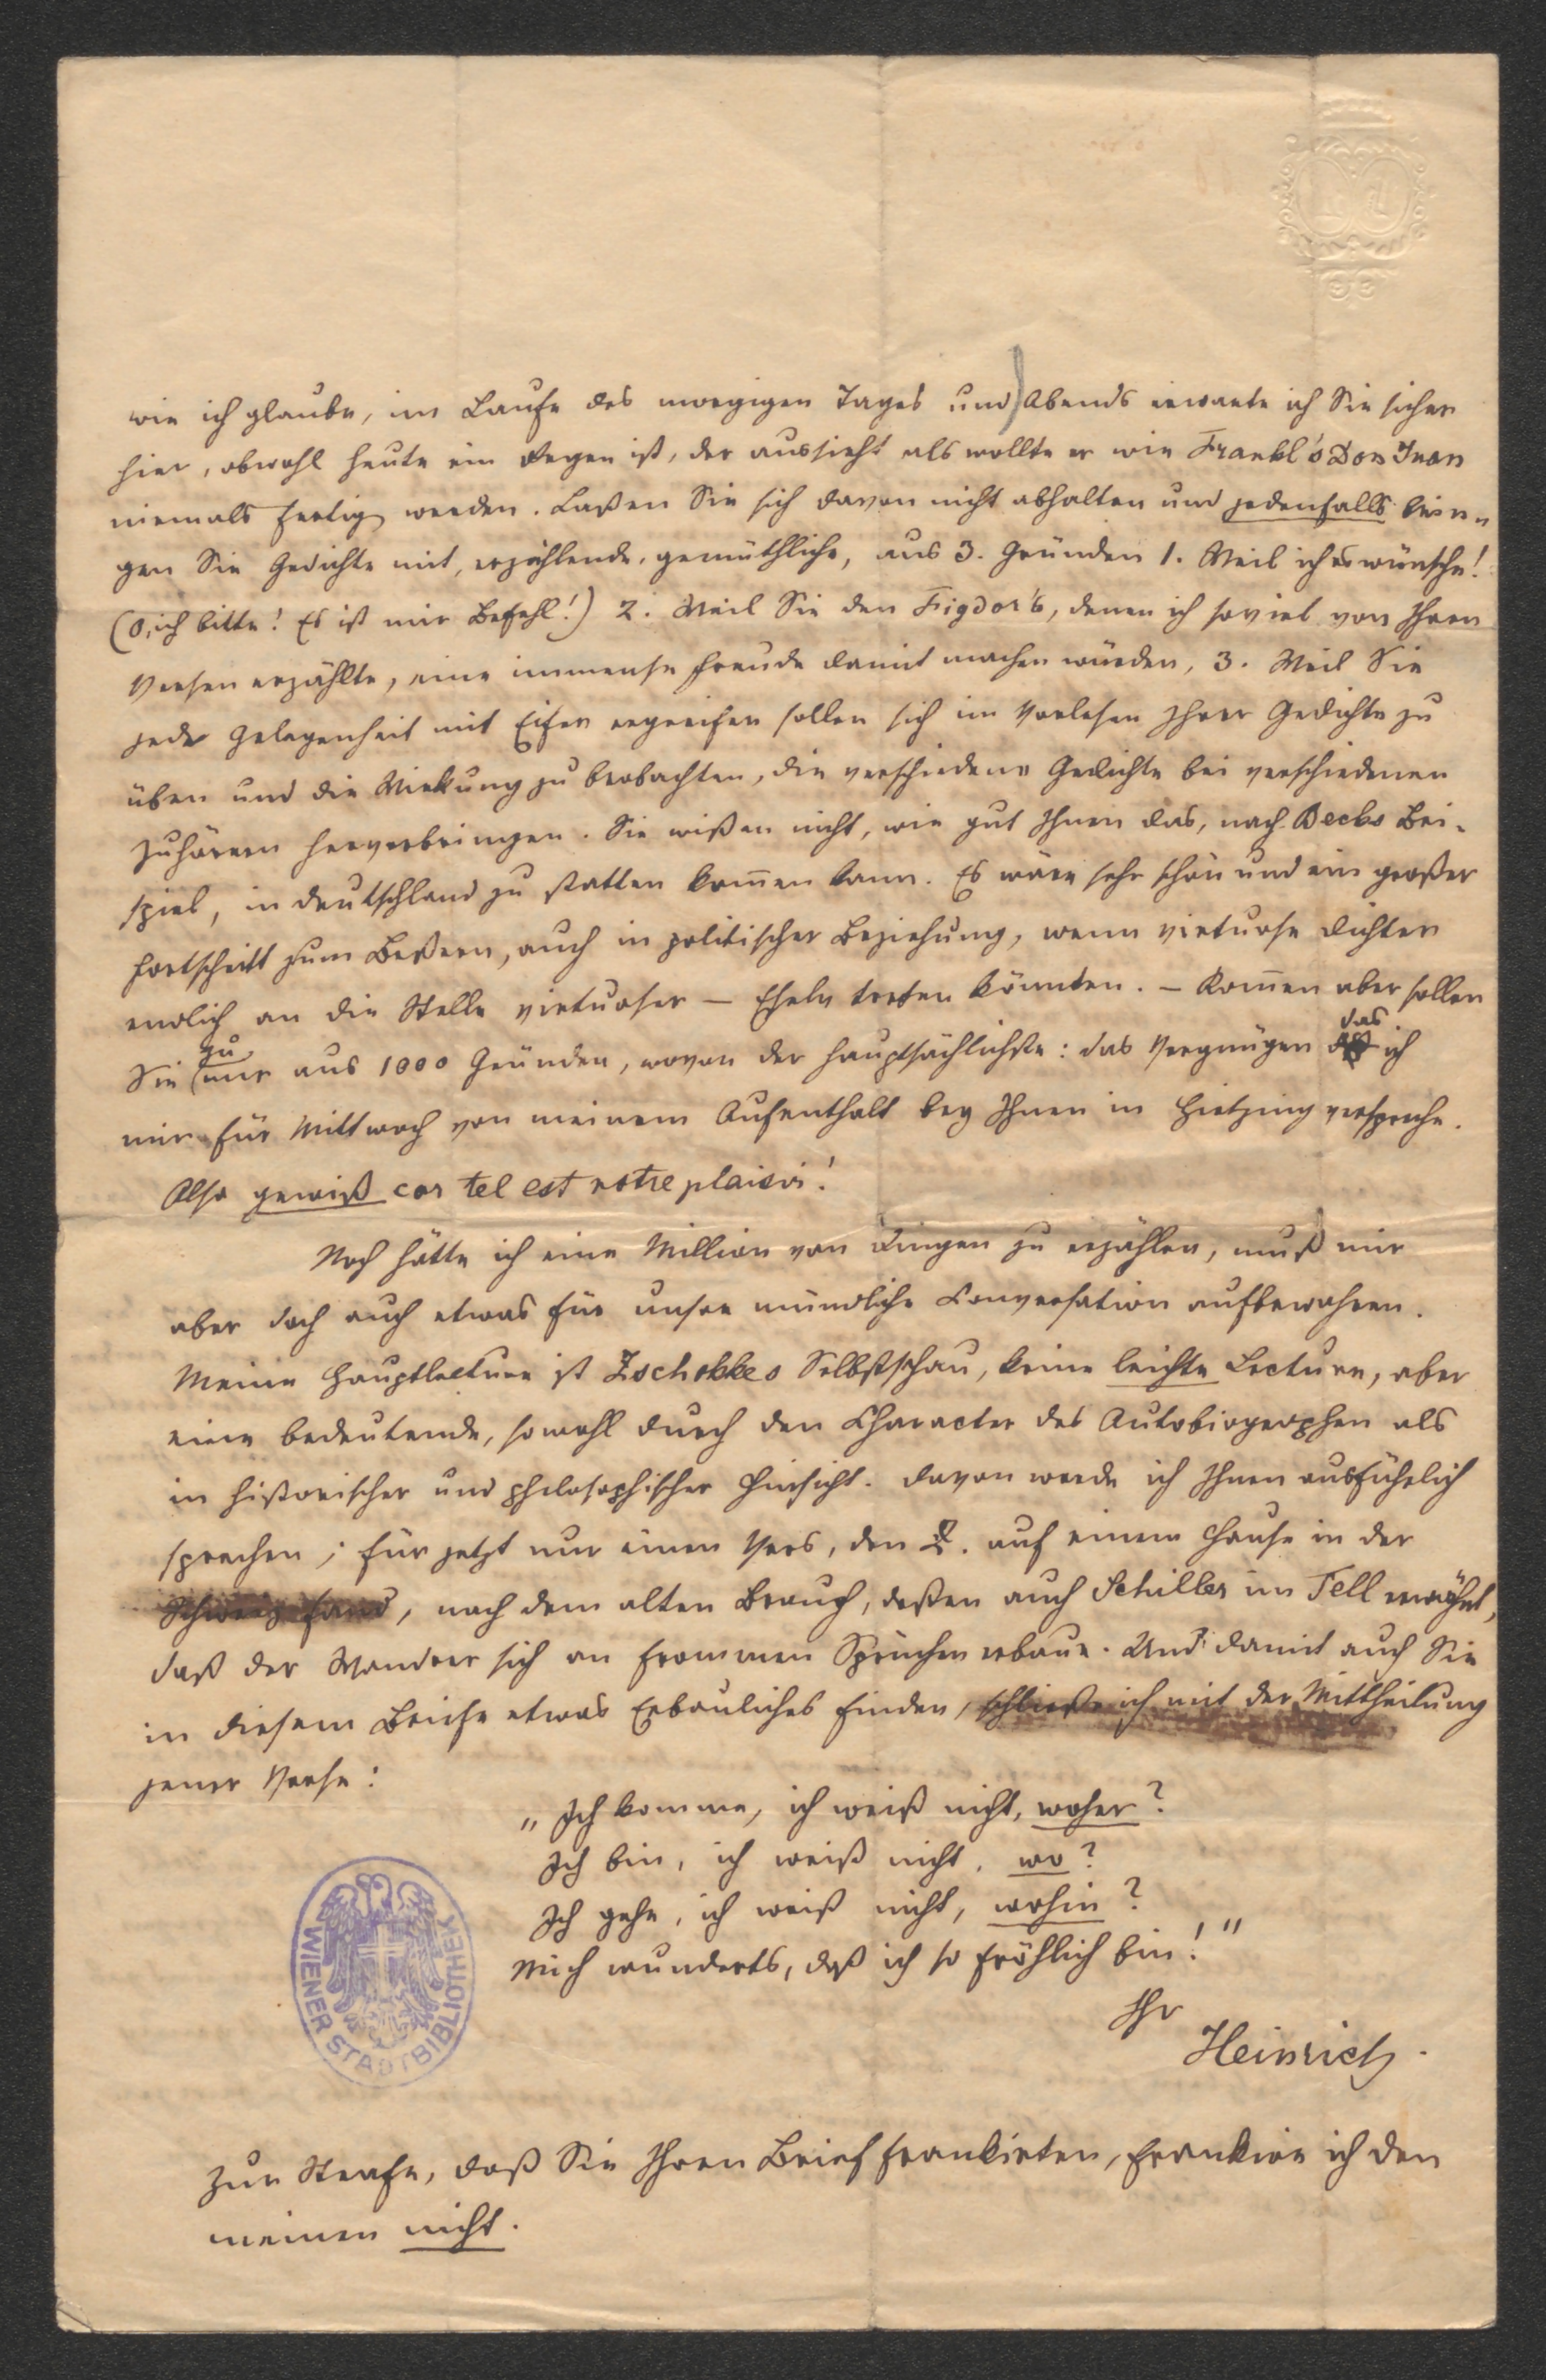 wie ich glaube, im Laufe des morgigen Tages und Abends erwarte ich Sie sicher
hier, obwohl heute ein Regen ist, der aussieht als wollte er wie Frankl's Don Juan
niemals fertig werden. Laßen Sie sich davon nicht abhalten und jedenfalls brin-
gen Sie Gedichte mit, erzählende, gemüthliche, aus 3. Gründen 1. Weil ich es wünsche!
(O, ich bitte! Es ist mir Befehl!) 2. Weil Sie den Figdor's, denen ich soviel von Ihren
Versen erzählte, eine immense Freude damit machen würden, 3. Weil Sie
jede Gelegenheit mit Eifer ergreifen sollen sich im Vorlesen Ihrer Gedichte zu
üben und die Wirkung zu beobachten, die verschiedene Gedichte bei verschiedenen
Zuhörern hervorbringen. Sie wißen nicht, wie gut Ihnen das, nach Becks Bei-
spiel, in Deutschland zu statten kom̅en kann. Es wäre sehr schön und ein großer
Fortschritt zum Beßern, auch in politischer Beziehung, wenn virtuose Dichter
endlich an die Stelle virtuoser – Esel treten könnten. – Kom̅en aber sollen
Sie zu mir aus 1000 Gründen, wovon der hauptsächlichste: das Vergnügen das ich
mir für Mittwoch von meinem Aufenthalt bey Ihnen in Hietzing verspreche.
Also gewiß car tel est notre plaisir!
Noch hätte ich eine Million von Dingen zu erzählen, muß mir
aber doch auch etwas für unsre mündliche Conversation aufbewahren.
Meine Hauptlecture ist Zschokkes Selbstschau, keine leichte Lecture, aber
eine bedeutende, sowohl durch den Character des Autobiographen als
in historischer und philosophischer Hinsicht. Davon werde ich Ihnen ausführlich
sprechen; für jetzt nur einen Vers, den Z. auf einem Hause in der
Schweiz fand, nach dem alten Brauch, deßen auch Schiller im Tell erwähnt,
daß der Wandrer sich an frommen Sprüchen erbaue. Und damit auch Sie
in diesem Briefe etwas Erbauliches finden, schließe ich mit der Mittheilung
jener Verse:
„Ich komme, ich weiß nicht, woher?
Ich bin, ich weiß nicht, wo?
Ich gehe, ich weiß nicht, wohin?
Mich wunderts, daß ich so fröhlich bin!"
Ihr
Heinrich.
WIENER STADTBIBLIOTHEK
Zur Strafe, daß Sie Ihren Brief frankirten, frankire ich den
meinen nicht.